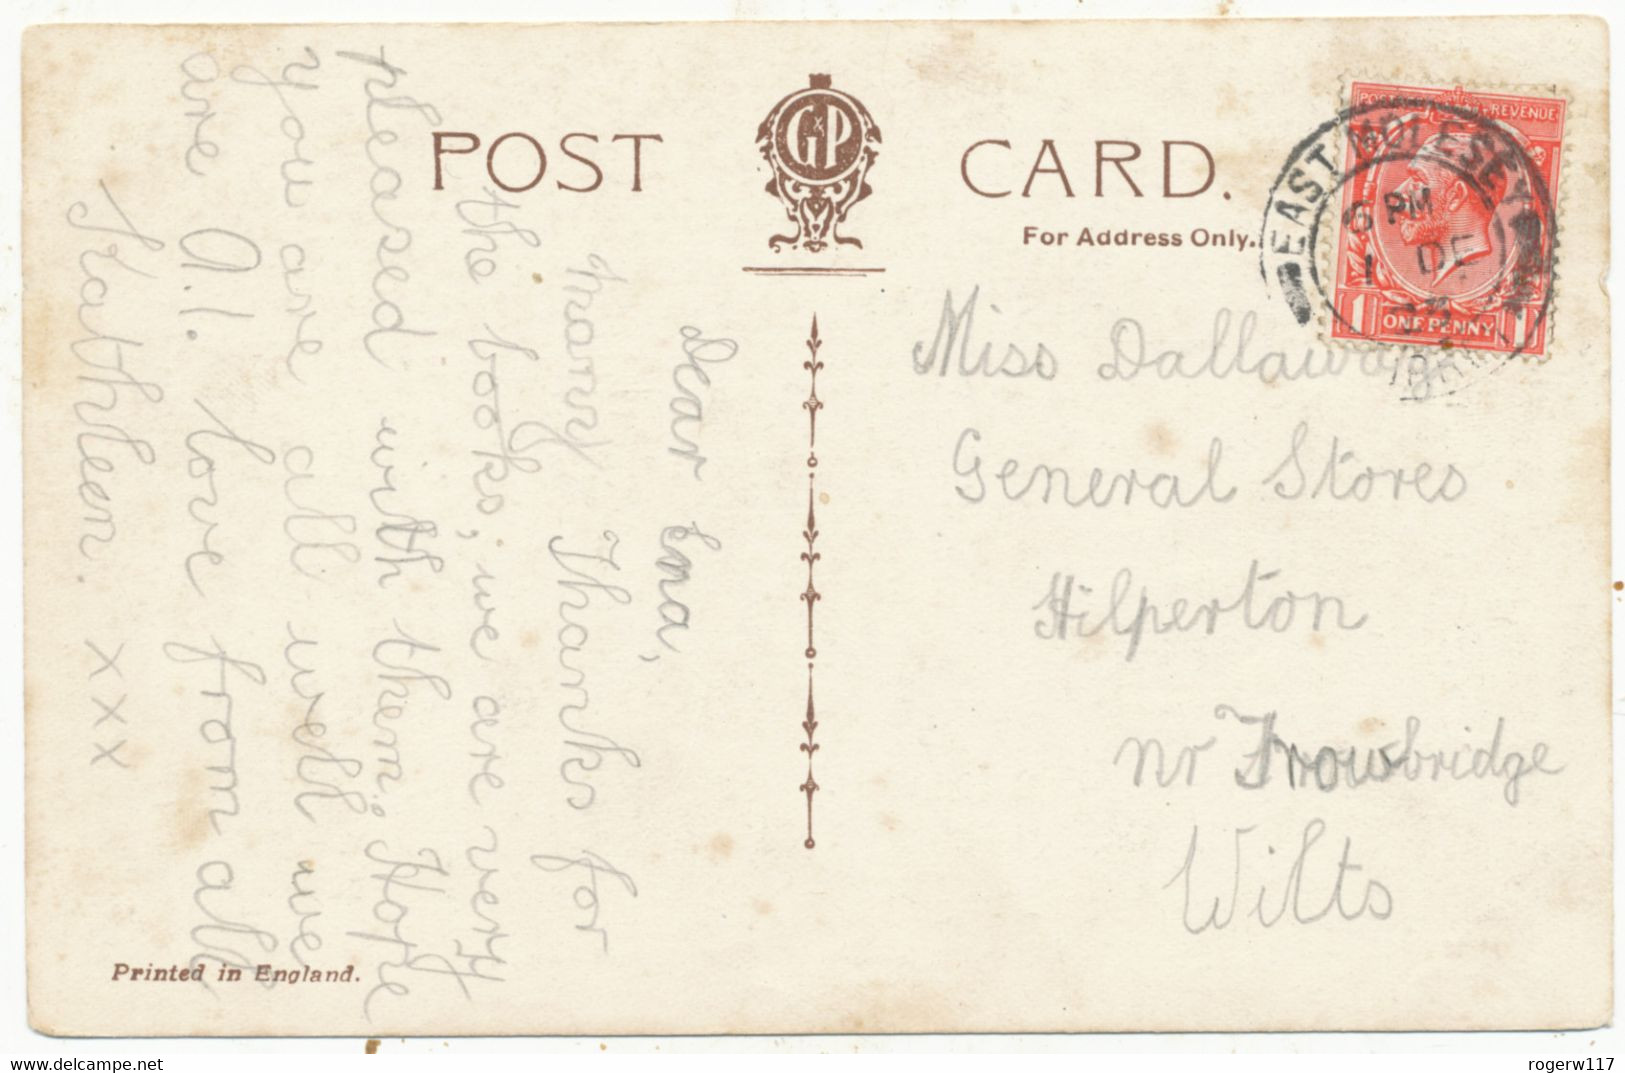 POST CARD.
G&P
For Address Only.
POSTAGE REVENUE
ONE PENNY
1 1
EAST MOLESEY
6 PM
1 DE
Dear Ena,
Many Thanks for
the books, we are very
pleased with them. Hope
you are all well we
are A.1. love from all
Kathleen. xxx
Miss Dallaway
General Stores
Hilperton
nr Trowbridge
Wilts
Printed in England.
rogerw117